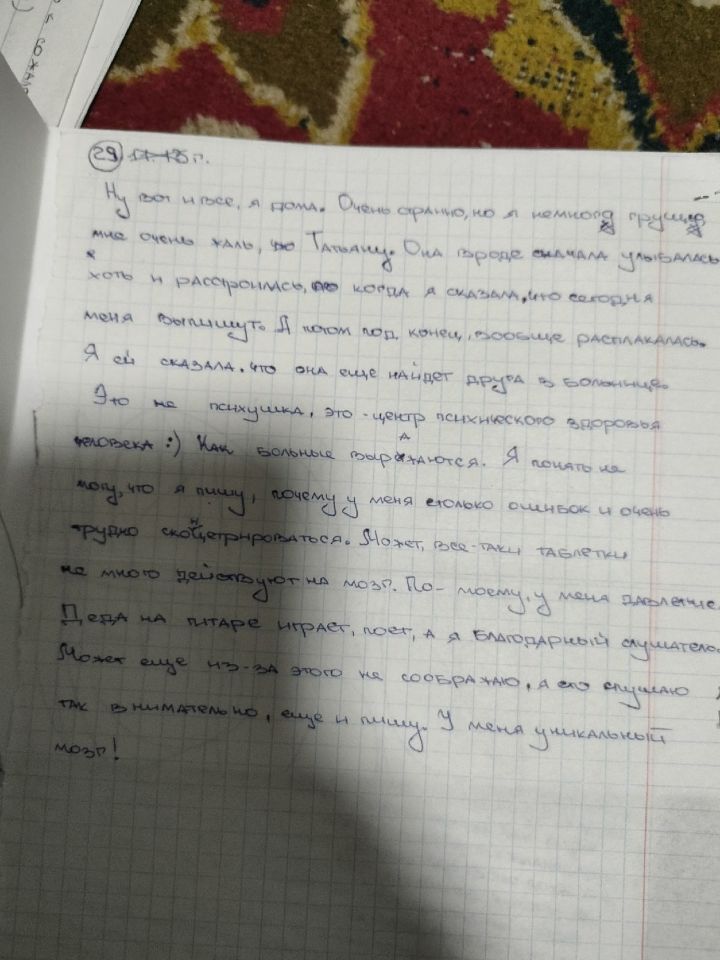 к сожал
29 г.
Ну вот и все, я дома. Очень странно, но я немного грущу
мне очень жаль, Татьяну. Она вроде сначала улыбалась
хоть и расстроилась, когда я сказала, что сегодня
меня выпишут. А потом под конец, вообще расплакалась.
Я ей сказала, что она еще найдет друга в больнице.
Это не психушка, это - центр психического здоровья
человека :) Как больные выражаются. Я понять не
могу, что я пишу, почему у меня столько ошибок и очень
трудно сконцетрироваться. Может, все-таки таблетки
не много действуют на мозг. По-моему, у меня давление.
Деда на гитаре играет, поет, а я благодарный слушатель.
Может еще из-за этого не соображаю, я его слушаю
так внимательно, еще и пишу. У меня уникальный
мозг!